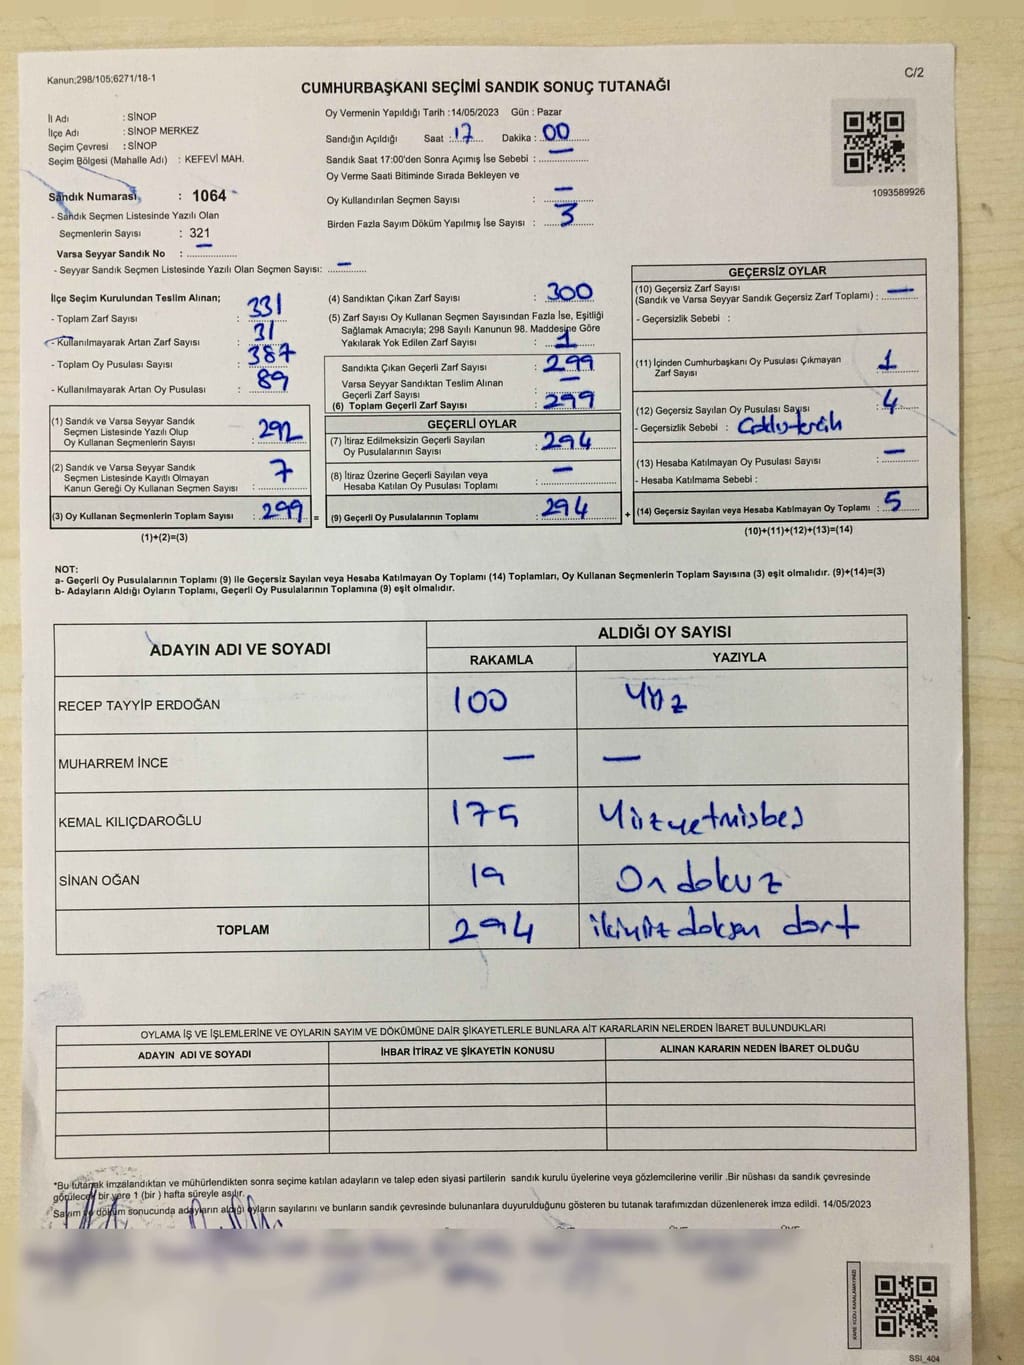 Kanun;298/105;6271/18-1
C/2
CUMHURBAŞKANI SEÇİMİ SANDIK SONUÇ TUTANAĞI
İl Adı : SİNOP
İlçe Adı : SİNOP MERKEZ
Seçim Çevresi : SİNOP
Seçim Bölgesi (Mahalle Adı) : KEFEVİ MAH.
Sandık Numarası : 1064
- Sandık Seçmen Listesinde Yazılı Olan
Seçmenlerin Sayısı : 321
Varsa Seyyar Sandık No : –
- Seyyar Sandık Seçmen Listesinde Yazılı Olan Seçmen Sayısı: –
Oy Vermenin Yapıldığı Tarih :14/05/2023 Gün : Pazar
Sandığın Açıldığı Saat : 17 Dakika : 00
Sandık Saat 17:00'den Sonra Açımış İse Sebebi : –
Oy Verme Saati Bitiminde Sırada Bekleyen ve
Oy Kullandırılan Seçmen Sayısı : –
Birden Fazla Sayım Döküm Yapılmış İse Sayısı : 3
1093589926
İlçe Seçim Kurulundan Teslim Alınan;
- Toplam Zarf Sayısı : 331
- Kullanılmayarak Artan Zarf Sayısı : 31
- Toplam Oy Pusulası Sayısı : 387
- Kullanılmayarak Artan Oy Pusulası : 89
(1) Sandık ve Varsa Seyyar Sandık
Seçmen Listesinde Yazılı Olup
Oy Kullanan Seçmenlerin Sayısı : 292
(2) Sandık ve Varsa Seyyar Sandık
Seçmen Listesinde Kayıtlı Olmayan
Kanun Gereği Oy Kullanan Seçmen Sayısı : 7
(3) Oy Kullanan Seçmenlerin Toplam Sayısı : 299 =
(1)+(2)=(3)
(4) Sandıktan Çıkan Zarf Sayısı : 300
(5) Zarf Sayısı Oy Kullanan Seçmen Sayısından Fazla İse, Eşitliği
Sağlamak Amacıyla; 298 Sayılı Kanunun 98. Maddesine Göre
Yakılarak Yok Edilen Zarf Sayısı : 1
Sandıkta Çıkan Geçerli Zarf Sayısı : 299
Varsa Seyyar Sandıktan Teslim Alınan
Geçerli Zarf Sayısı : –
(6) Toplam Geçerli Zarf Sayısı : 299
GEÇERLİ OYLAR
(7) İtiraz Edilmeksizin Geçerli Sayılan
Oy Pusulalarının Sayısı : 294
(8) İtiraz Üzerine Geçerli Sayılan veya
Hesaba Katılan Oy Pusulası Toplamı : –
(9) Geçerli Oy Pusulalarının Toplamı : 294 +
GEÇERSİZ OYLAR
(10) Geçersiz Zarf Sayısı
(Sandık ve Varsa Seyyar Sandık Geçersiz Zarf Toplamı) : –
- Geçersizlik Sebebi :
(11) İçinden Cumhurbaşkanı Oy Pusulası Çıkmayan
Zarf Sayısı : 1
(12) Geçersiz Sayılan Oy Pusulası Sayısı : 4
- Geçersizlik Sebebi : Çoklu tercih
(13) Hesaba Katılmayan Oy Pusulası Sayısı : –
- Hesaba Katılmama Sebebi :
(14) Geçersiz Sayılan veya Hesaba Katılmayan Oy Toplamı : 5
(10)+(11)+(12)+(13)=(14)
NOT:
a- Geçerli Oy Pusulalarının Toplamı (9) ile Geçersiz Sayılan veya Hesaba Katılmayan Oy Toplamı (14) Toplamları, Oy Kullanan Seçmenlerin Toplam Sayısına (3) eşit olmalıdır. (9)+(14)=(3)
b- Adayların Aldığı Oyların Toplamı, Geçerli Oy Pusulalarının Toplamına (9) eşit olmalıdır.
ADAYIN ADI VE SOYADI ALDIĞI OY SAYISI
RAKAMLA YAZIYLA
RECEP TAYYİP ERDOĞAN 100 Yüz
MUHARREM İNCE – –
KEMAL KILIÇDAROĞLU 175 Yüzyetmisbeş
SİNAN OĞAN 19 On dokuz
TOPLAM 294 ikiyüz doksan dört
OYLAMA İŞ VE İŞLEMLERİNE VE OYLARIN SAYIM VE DÖKÜMÜNE DAİR ŞİKAYETLERLE BUNLARA AİT KARARLARIN NELERDEN İBARET BULUNDUKLARI
ADAYIN ADI VE SOYADI İHBAR İTİRAZ VE ŞİKAYETİN KONUSU ALINAN KARARIN NEDEN İBARET OLDUĞU
*Bu tutanak imzalandıktan ve mühürlendikten sonra seçime katılan adayların ve talep eden siyasi partilerin sandık kurulu üyelerine veya gözlemcilerine verilir .Bir nüshası da sandık çevresinde
görülecek bir yere 1 (bir ) hafta süreyle asılır.
Sayım ve döküm sonucunda adayların aldığı oyların sayılarını ve bunların sandık çevresinde bulunanlara duyurulduğunu gösteren bu tutanak tarafımızdan düzenlenerek imza edildi. 14/05/2023
SSI_404